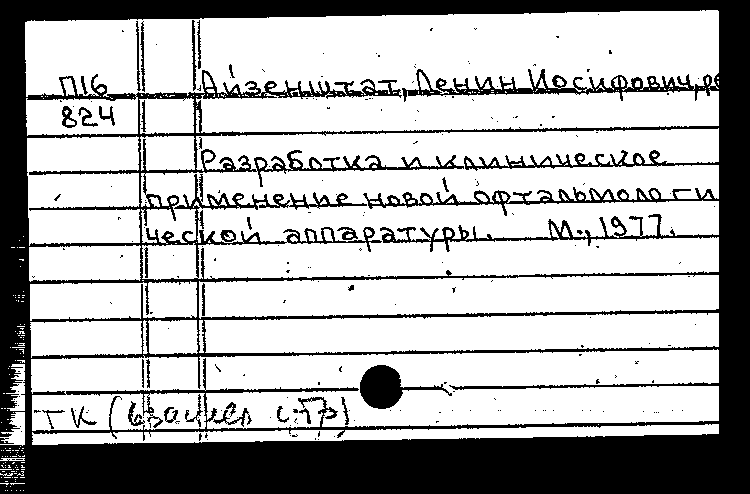 П16 Айзенштат, Ленин Иосифович, ре
824
Разработка и клиническое
применение новой офтальмологи
ческой аппаратуры. М., 1977.
ТК (взамен